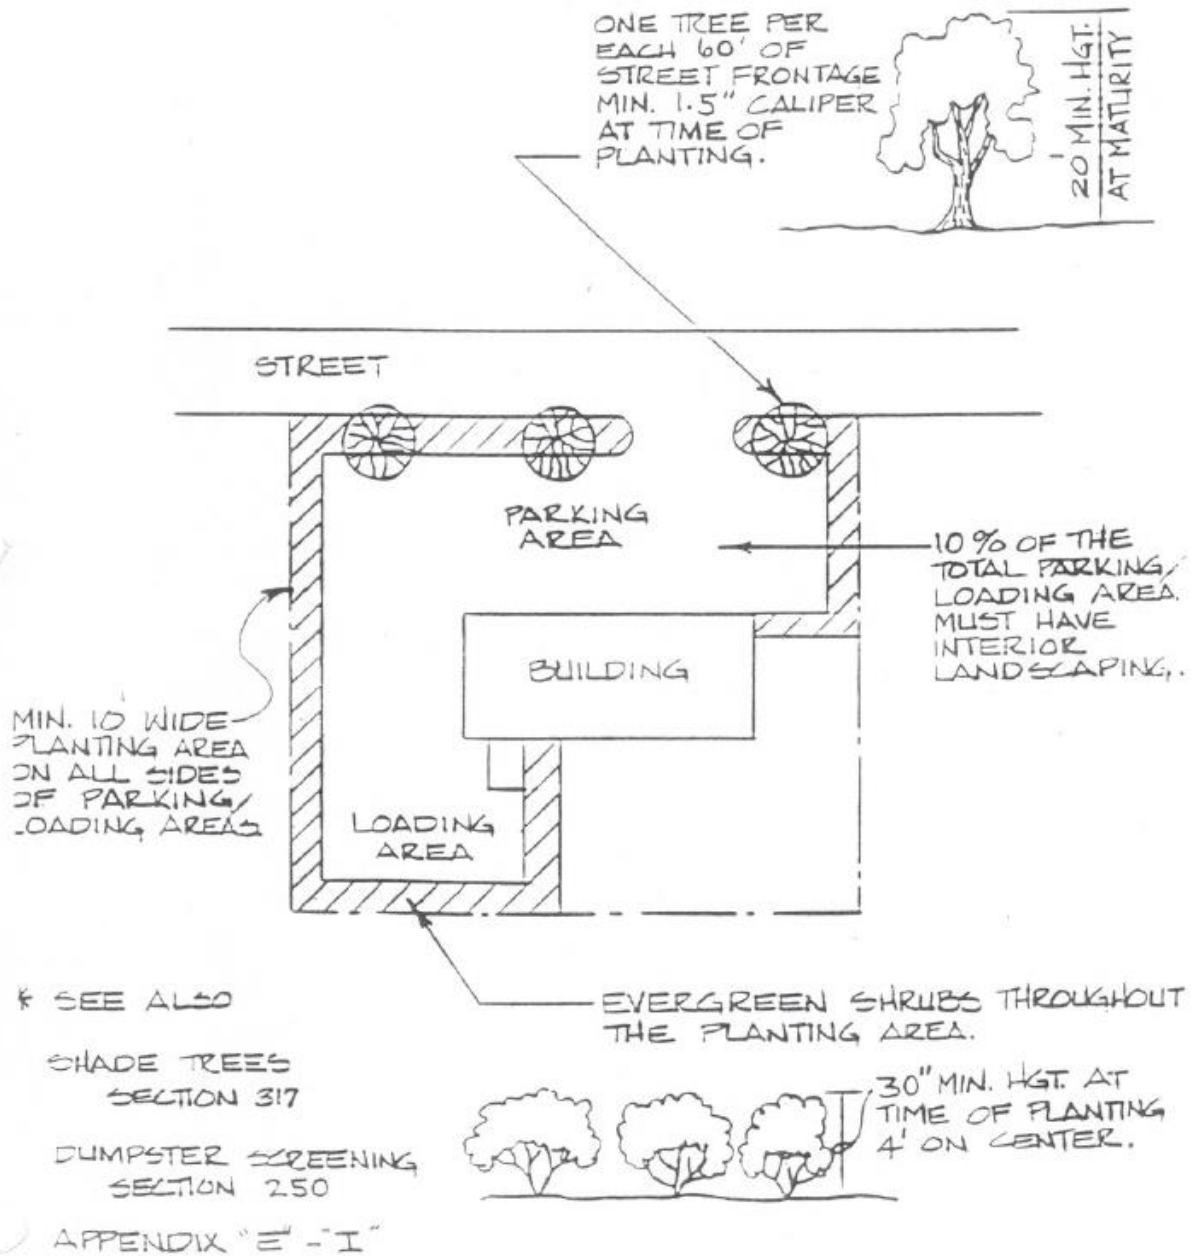 ONE TREE PER
EACH 60' OF
STREET FRONTAGE
MIN. 1.5" CALIPER
AT TIME OF
PLANTING.
20' MIN. HGT.
AT MATURITY
STREET
PARKING
AREA
10% OF THE
TOTAL PARKING/
LOADING AREA
MUST HAVE
INTERIOR
LANDSCAPING.
BUILDING
MIN. 10' WIDE
PLANTING AREA
ON ALL SIDES
OF PARKING/
LOADING AREAS
LOADING
AREA
* SEE ALSO
SHADE TREES
SECTION 317
DUMPSTER SCREENING
SECTION 250
APPENDIX "E" - "I"
EVERGREEN SHRUBS THROUGHOUT
THE PLANTING AREA.
30" MIN. HGT. AT
TIME OF PLANTING
4' ON CENTER.